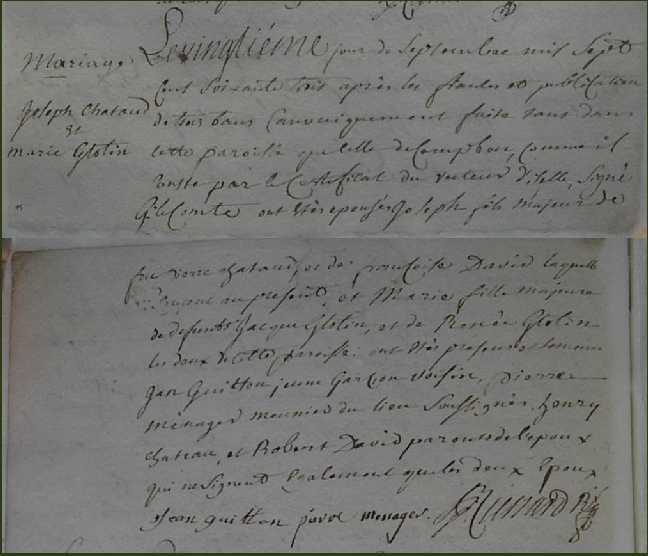 Mariage
Joseph Chataud
et
marie Glotin
Le vingtiéme jour de Septembre mil Sept
Cent Soixante trois après les fiancles et publication
de trois bans Canoniquement faite tant dans
cette paroisse qu'elle de Compbon, Comme il
Conste par le Certificat du recteur d'iselle, Signé
G. le Comte ont étés epousés Joseph fils majeur de
feu pierre chataud, et de françoise David laquelle
present au present, et Marie fille majeure
de defunts Jacque Glotin, et de Renée Glotin
les deux de cette paroisse. ont étés presens et temoins
Jan Guitton jeune Garçon voisin, pierre
ménager meunier du lieu Soussignés, henry
chateau, et Robert David parents de l'epoux
qui ne signent Egalement que les deux Epoux
Jean guitton pierre menager.